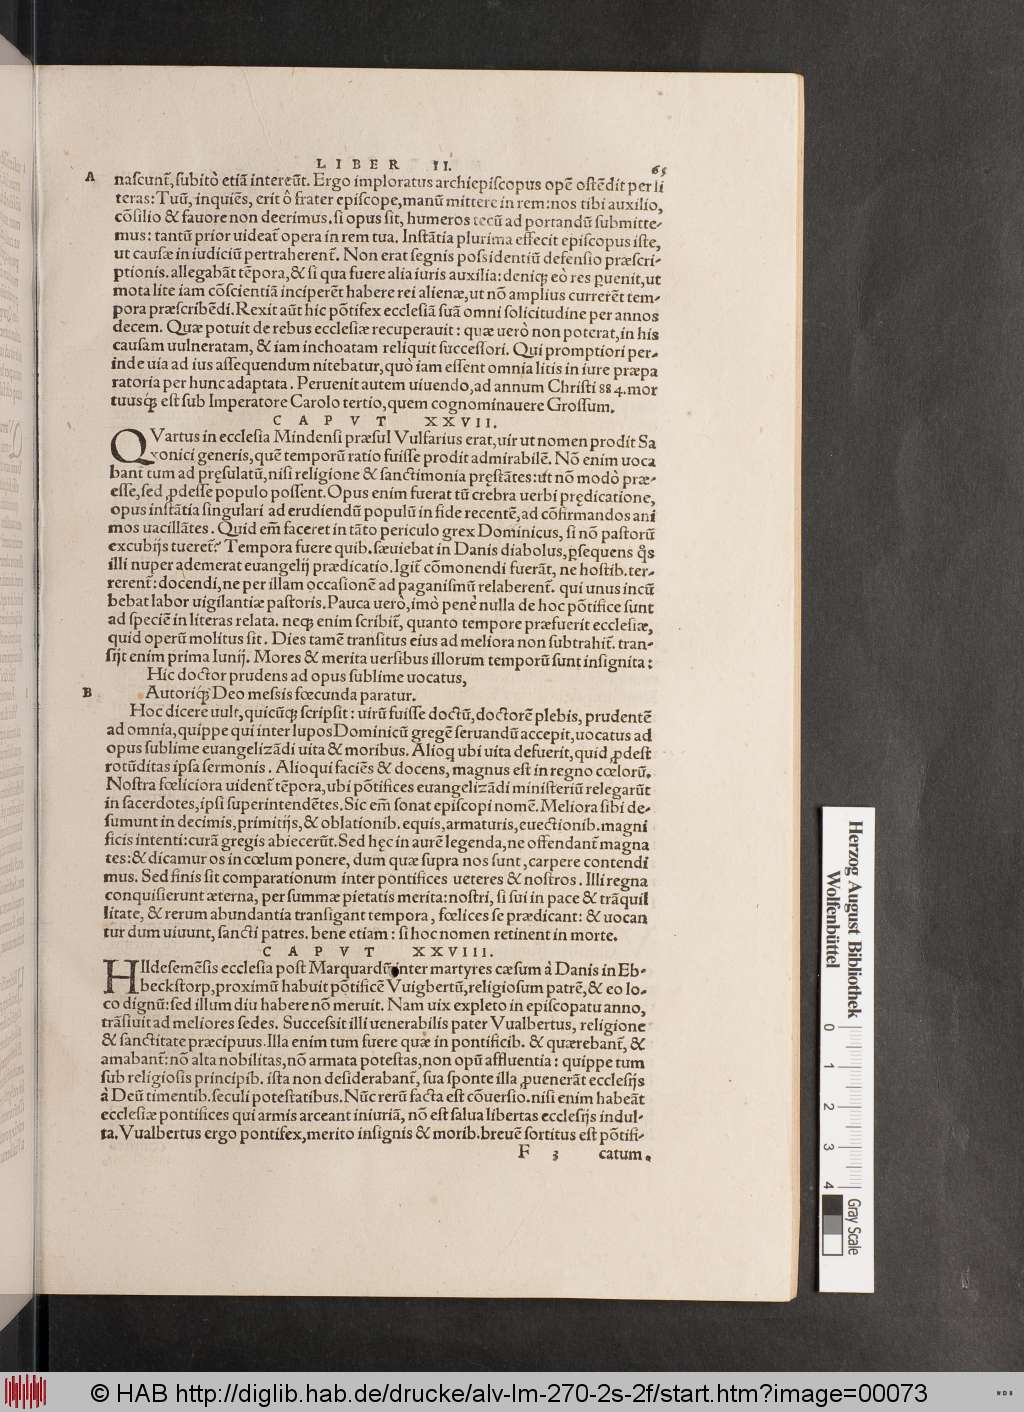 LIBER II. 65
A nascunt̃, subitò etiã intereũt. Ergo imploratus archiepiscopus opẽ ostẽdit per li
teras: Tuũ, inquiẽs, erit ô frater episcope, manũ mittere in rem: nos tibi auxilio,
cõsilio & fauore non deerimus. si opus sit, humeros tecũ ad portandũ submitte-
mus: tantũ prior uideat̃ opera in rem tua. Instãtia plurima effecit episcopus iste,
ut causæ in iudiciũ pertraherent̃. Non erat segnis possidentiũ defensio præscri-
ptionis. allegabãt tẽpora, & si qua fuere alia iuris auxilia: deniq; eò res ꝑuenit, ut
mota lite iam cõscientiã inciperẽt habere rei alienæ, ut nõ amplius currerẽt tem-
pora præscribẽdi. Rexit aũt hic põtifex ecclesiã suã omni solicitudine per annos
decem. Quæ potuit de rebus ecclesiæ recuperauit: quæ uerò non poterat, in his
causam uulneratam, & iam inchoatam reliquit successori. Qui promptiori per-
inde uia ad ius assequendum nitebatur, quò iam essent omnia litis in iure præpa
ratoria per hunc adaptata. Peruenit autem uiuendo, ad annum Christi 884. mor
tuusq́; est sub Imperatore Carolo tertio, quem cognominauere Grossum.
CAPVT XXVII.
QVartus in ecclesia Mindensi præsul Vulfarius erat, uir ut nomen prodit Sa
xonici generis, quẽ temporũ ratio fuisse prodit admirabilẽ. Nõ enim uoca
bant tum ad pręsulatũ, nisi religione & sanctimonia pręstãtes: ut nõ modò præ-
esse, sed ꝓdesse populo possent. Opus enim fuerat tũ crebra uerbi prędicatione,
opus instãtia singulari ad erudiendũ populũ in fide recentẽ, ad cõfirmandos ani
mos uacillãtes. Quid em̃ faceret in tãto periculo grex Dominicus, si nõ pastorũ
excubijs tueret̃? Tempora fuere quib. sæuiebat in Danis diabolus, ꝑsequens q̃s
illi nuper ademerat euangelij prædicatio. Igit̃ cõmonendi fuerãt, ne hostib. ter-
rerent̃: docendi, ne per illam occasionẽ ad paganismũ relaberent̃. qui unus incũ
bebat labor uigilantiæ pastoris. Pauca uerò, imò penè nulla de hoc põtifice sunt
ad speciẽ in literas relata. neq; enim scribit̃, quanto tempore præfuerit ecclesiæ,
quid operũ molitus sit. Dies tamẽ transitus eius ad meliora non subtrahit̃. tran-
sijt enim prima Iunij. Mores & merita uersibus illorum temporũ sunt insignita:
Hic doctor prudens ad opus sublime uocatus,
B Autoriq́; Deo messis fœcunda paratur.
Hoc dicere uult, quicũq; scripsit: uirũ fuisse doctũ, doctorẽ plebis, prudentẽ
ad omnia, quippe qui inter lupos Dominicũ gregẽ seruandũ accepit, uocatus ad
opus sublime euangelizãdi uita & moribus. Alioq ubi uita defuerit, quid ꝓdest
rotũditas ipsa sermonis. Alioqui faciẽs & docens, magnus est in regno cœlorũ.
Nostra fœliciora uident̃ tẽpora, ubi põtifices euangelizãdi ministeriũ relegarũt
in sacerdotes, ipsi superintendẽtes. Sic em̃ sonat episcopi nomẽ. Meliora sibi de-
sumunt in decimis, primitijs, & oblationib. equis, armaturis, euectionib. magni
ficis intenti: curã gregis abiecerũt. Sed hęc in aurẽ legenda, ne offendant̃ magna
tes: & dicamur os in cœlum ponere, dum quæ supra nos sunt, carpere contendi
mus. Sed finis sit comparationum inter pontifices ueteres & nostros. Illi regna
conquisierunt æterna, per summæ pietatis merita: nostri, si sui in pace & trãquil
litate, & rerum abundantia transigant tempora, fœlices se prædicant: & uocan
tur dum uiuunt, sancti patres. bene etiam: si hoc nomen retinent in morte.
CAPVT XXVIII.
HIldesemẽsis ecclesia post Marquardũ inter martyres cæsum à Danis in Eb-
beckstorp, proximũ habuit põtificẽ Vuigbertũ, religiosum patrẽ, & eo lo-
co dignũ: sed illum diu habere nõ meruit. Nam uix expleto in episcopatu anno,
trãsiuit ad meliores sedes. Successit illi uenerabilis pater Vualbertus, religione
& sanctitate præcipuus. Illa enim tum fuere quæ in pontificib. & quærebant̃, &
amabant̃: nõ alta nobilitas, nõ armata potestas, non opũ affluentia: quippe tum
sub religiosis principib. ista non desiderabant̃, sua sponte illa ꝓuenerãt ecclesijs
à Deũ timentib. seculi potestatibus. Nũc rerũ facta est cõuersio. nisi enim habeãt
ecclesiæ pontifices qui armis arceant iniuriã, nõ est salua libertas ecclesijs indul-
ta. Vualbertus ergo pontifex, merito insignis & morib. breuẽ sortitus est põtifi-
F 3 catum.
Herzog August Bibliothek
Wolfenbüttel
0 1 2 3 4
Gray Scale
© HAB http://diglib.hab.de/drucke/alv-lm-270-2s-2f/start.htm?image=00073
WDB